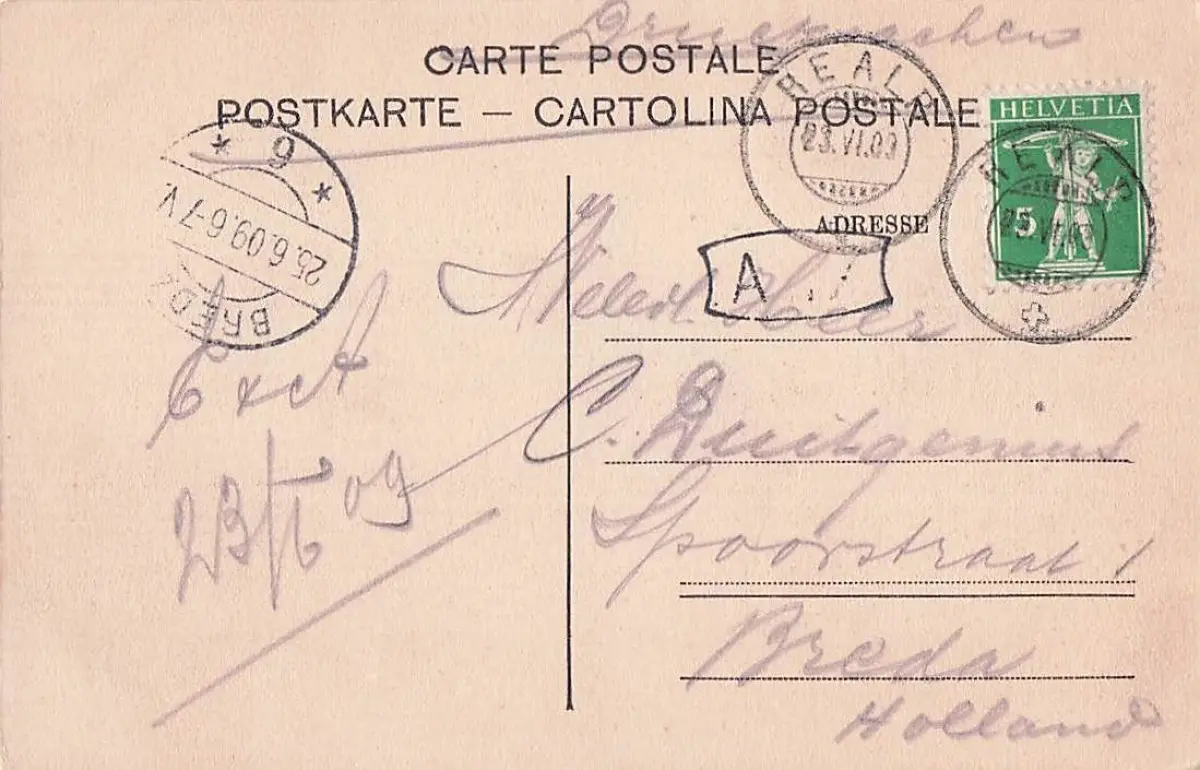 Drucksachen
CARTE POSTALE
POSTKARTE — CARTOLINA POSTALE
REALP
23.VI.09
HELVETIA
5
REALP
BREDA
25.6.09.6-7V.
6
ADRESSE
A
Weled. Heer
C.
Spoorstraat 1
Breda
Holland
23/6 09